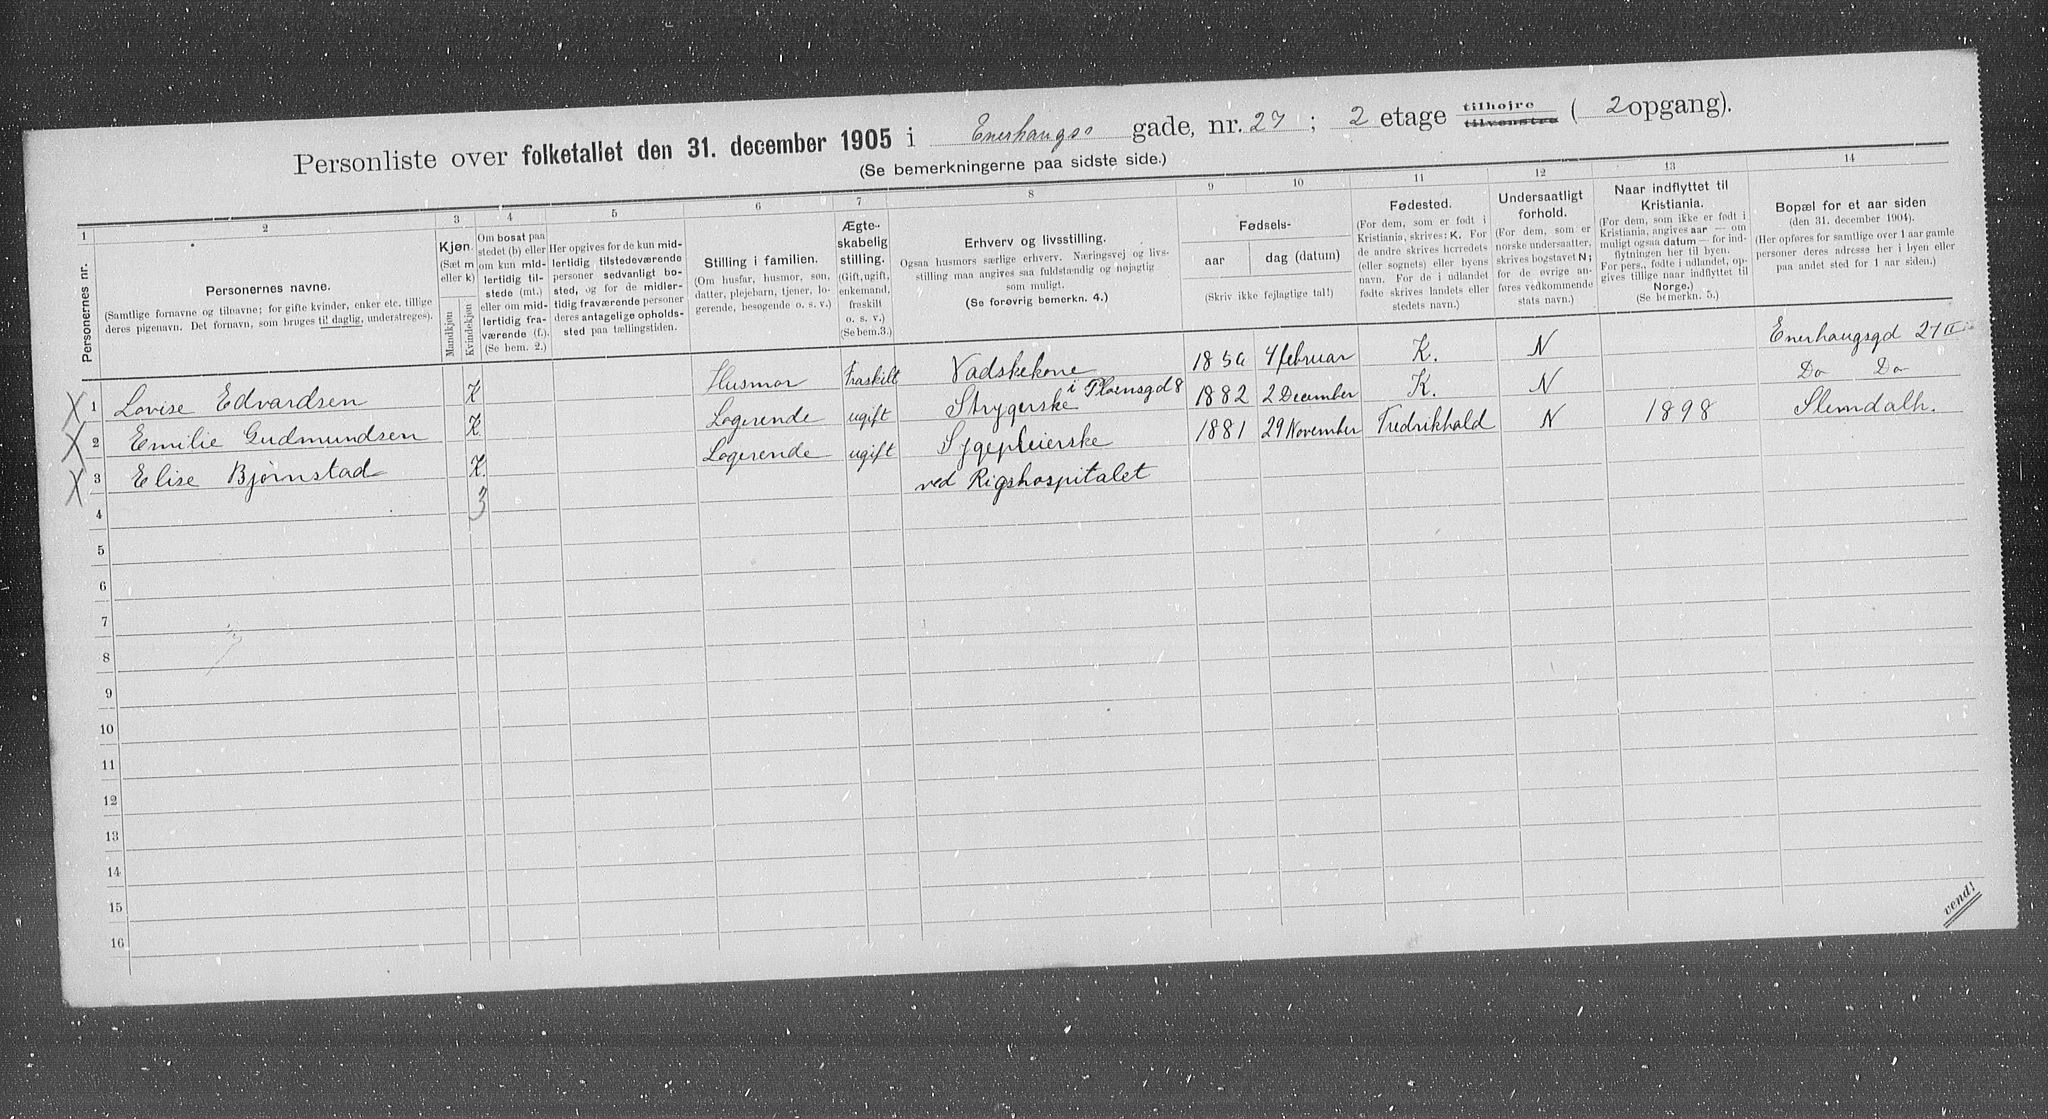 Personliste over folketallet den 31. december 1905 i Enerhaugs gade, nr. 27; 2 etage tilhøjre tilvenstre (2 opgang).
(Se bemerkningerne paa sidste side.)
1 2 3 4 5 6 7 8 9 10 11 12 13 14
Personernes nr.
Personernes navne.
(Samtlige fornavne og tilnavne; for gifte kvinder, enker etc. tillige
deres pigenavn. Det fornavn, som bruges til daglig, understreges).
Kjøn.
(Sæt m
eller k)
Mandkjøn
Kvindekjøn
Om bosat paa
stedet (b) eller
om kun mid-
lertidig til-
stede (mt.)
eller om mid-
lertidig fra-
værende (f.).
(Se bem. 2.)
Her opgives for de kun mid-
lertidig tilstedeværende
personer sedvanligt bo-
sted, og for de midler-
tidig fraværende personer
deres antagelige opholds-
sted paa tællingstiden.
Stilling i familien.
(Om husfar, husmor, søn,
datter, plejebarn, tjener, lo-
gerende, besøgende o. s. v.)
Ægte-
skabelig
stilling.
(Gift, ugift,
enkemand,
fraskilt
o. s. v.)
(Se bem. 3.)
Erhverv og livsstilling.
Ogsaa husmors særlige erhverv. Næringsvej og livs-
stilling maa angives saa fuldstændig og nøjagtig
som muligt.
(Se forøvrig bemerkn. 4.)
Fødsels-
aar
dag (datum)
(Skriv ikke fejlagtige tal!)
Fødested.
(For dem, som er født i
Kristiania, skrives: K. For
de andre skrives herredets
(eller sognets) eller byens
navn. For de i udlandet
fødte skrives landets eller
stedets navn.)
Undersaatligt
forhold.
(For dem, som er
norske undersaatter,
skrives bogstavet N;
for de øvrige an-
føres vedkommende
stats navn.)
Naar indflyttet til
Kristiania.
(For dem, som ikke er født i
Kristiania, angives aar — om
muligt ogsaa datum — for ind-
flytningen her til byen.
For pers., fødte i udlandet, op-
gives tillige naar indflyttet til
Norge.)
(Se bemerkn. 5.)
Bopæl for et aar siden
(den 31. december 1904).
(Her opføres for samtlige over 1 aar gamle
personer deres adresse her i byen eller
paa andet sted for 1 aar siden.)
X 1 Lovise Edvardsen K Husmor Fraskilt Vadskekone 1850 4 februar K. N Enerhaugsgd 27 II
X 2 Emilie Gudmundsen K Logerende ugift Strygerske i Ploensgd 8 1882 2 December K. N Do Do
X 3 Elise Bjørnstad K Logerende ugift Sygepleierske 1881 29 November Fredrikhald N 1898 Slemdalh.
ved Rigshospitalet
4 3
5
6
7
8
9
10
11
12
13
14
15
16
vend!